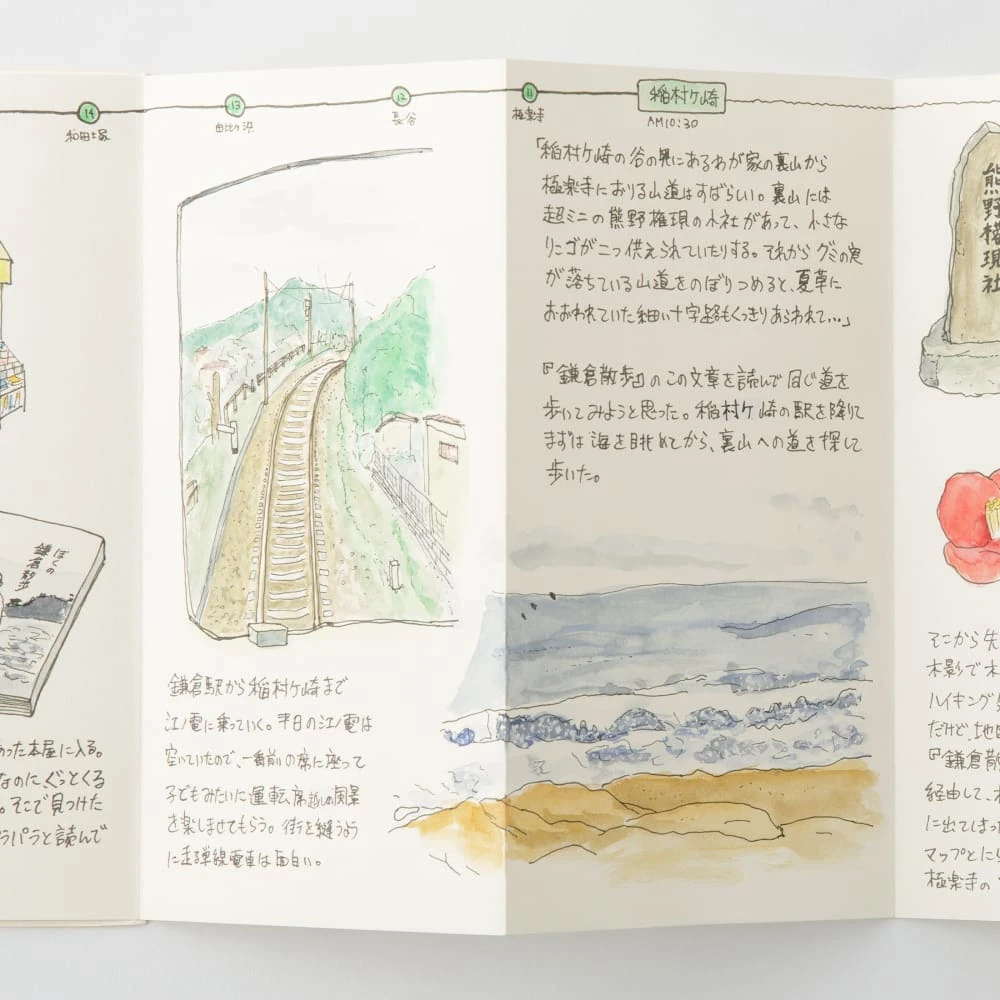 14
和田塚
13
由比ヶ浜
12
長谷
11
極楽寺
稲村ヶ崎
AM10:30
ぼくの
鎌倉散歩
あった本屋に入る。
なのにぐっとくる
。そこで見つけた
ラパラと読んで
鎌倉駅から稲村ヶ崎まで
江ノ電に乗っていく。平日の江ノ電は
空いていたので、一番前の席に座って
子どもみたいに運転席越しの風景
を楽しませてもらう。街を縫うよう
に走る単線電車は面白い。
「稲村ヶ崎の谷の奥にあるわが家の裏山から
極楽寺におりる山道はすばらしい。裏山には
超ミニの熊野権現の小社があって、小さな
リンゴが二つ供えられていたりする。それからグミの実
が落ちている山道をのぼりつめると、夏草に
おおわれていた細い十字路もくっきりあらわれて…」
『鎌倉散歩』のこの文章を読んで同じ道を
歩いてみようと思った。稲村ヶ崎の駅を降りて
まずは海を眺めてから、裏山への道を探して
歩いた。
熊野権現社
そこから先
木影で木
ハイキング
だけど、地
『鎌倉散
経由して、
に出てしまっ
マップとに
極楽寺の